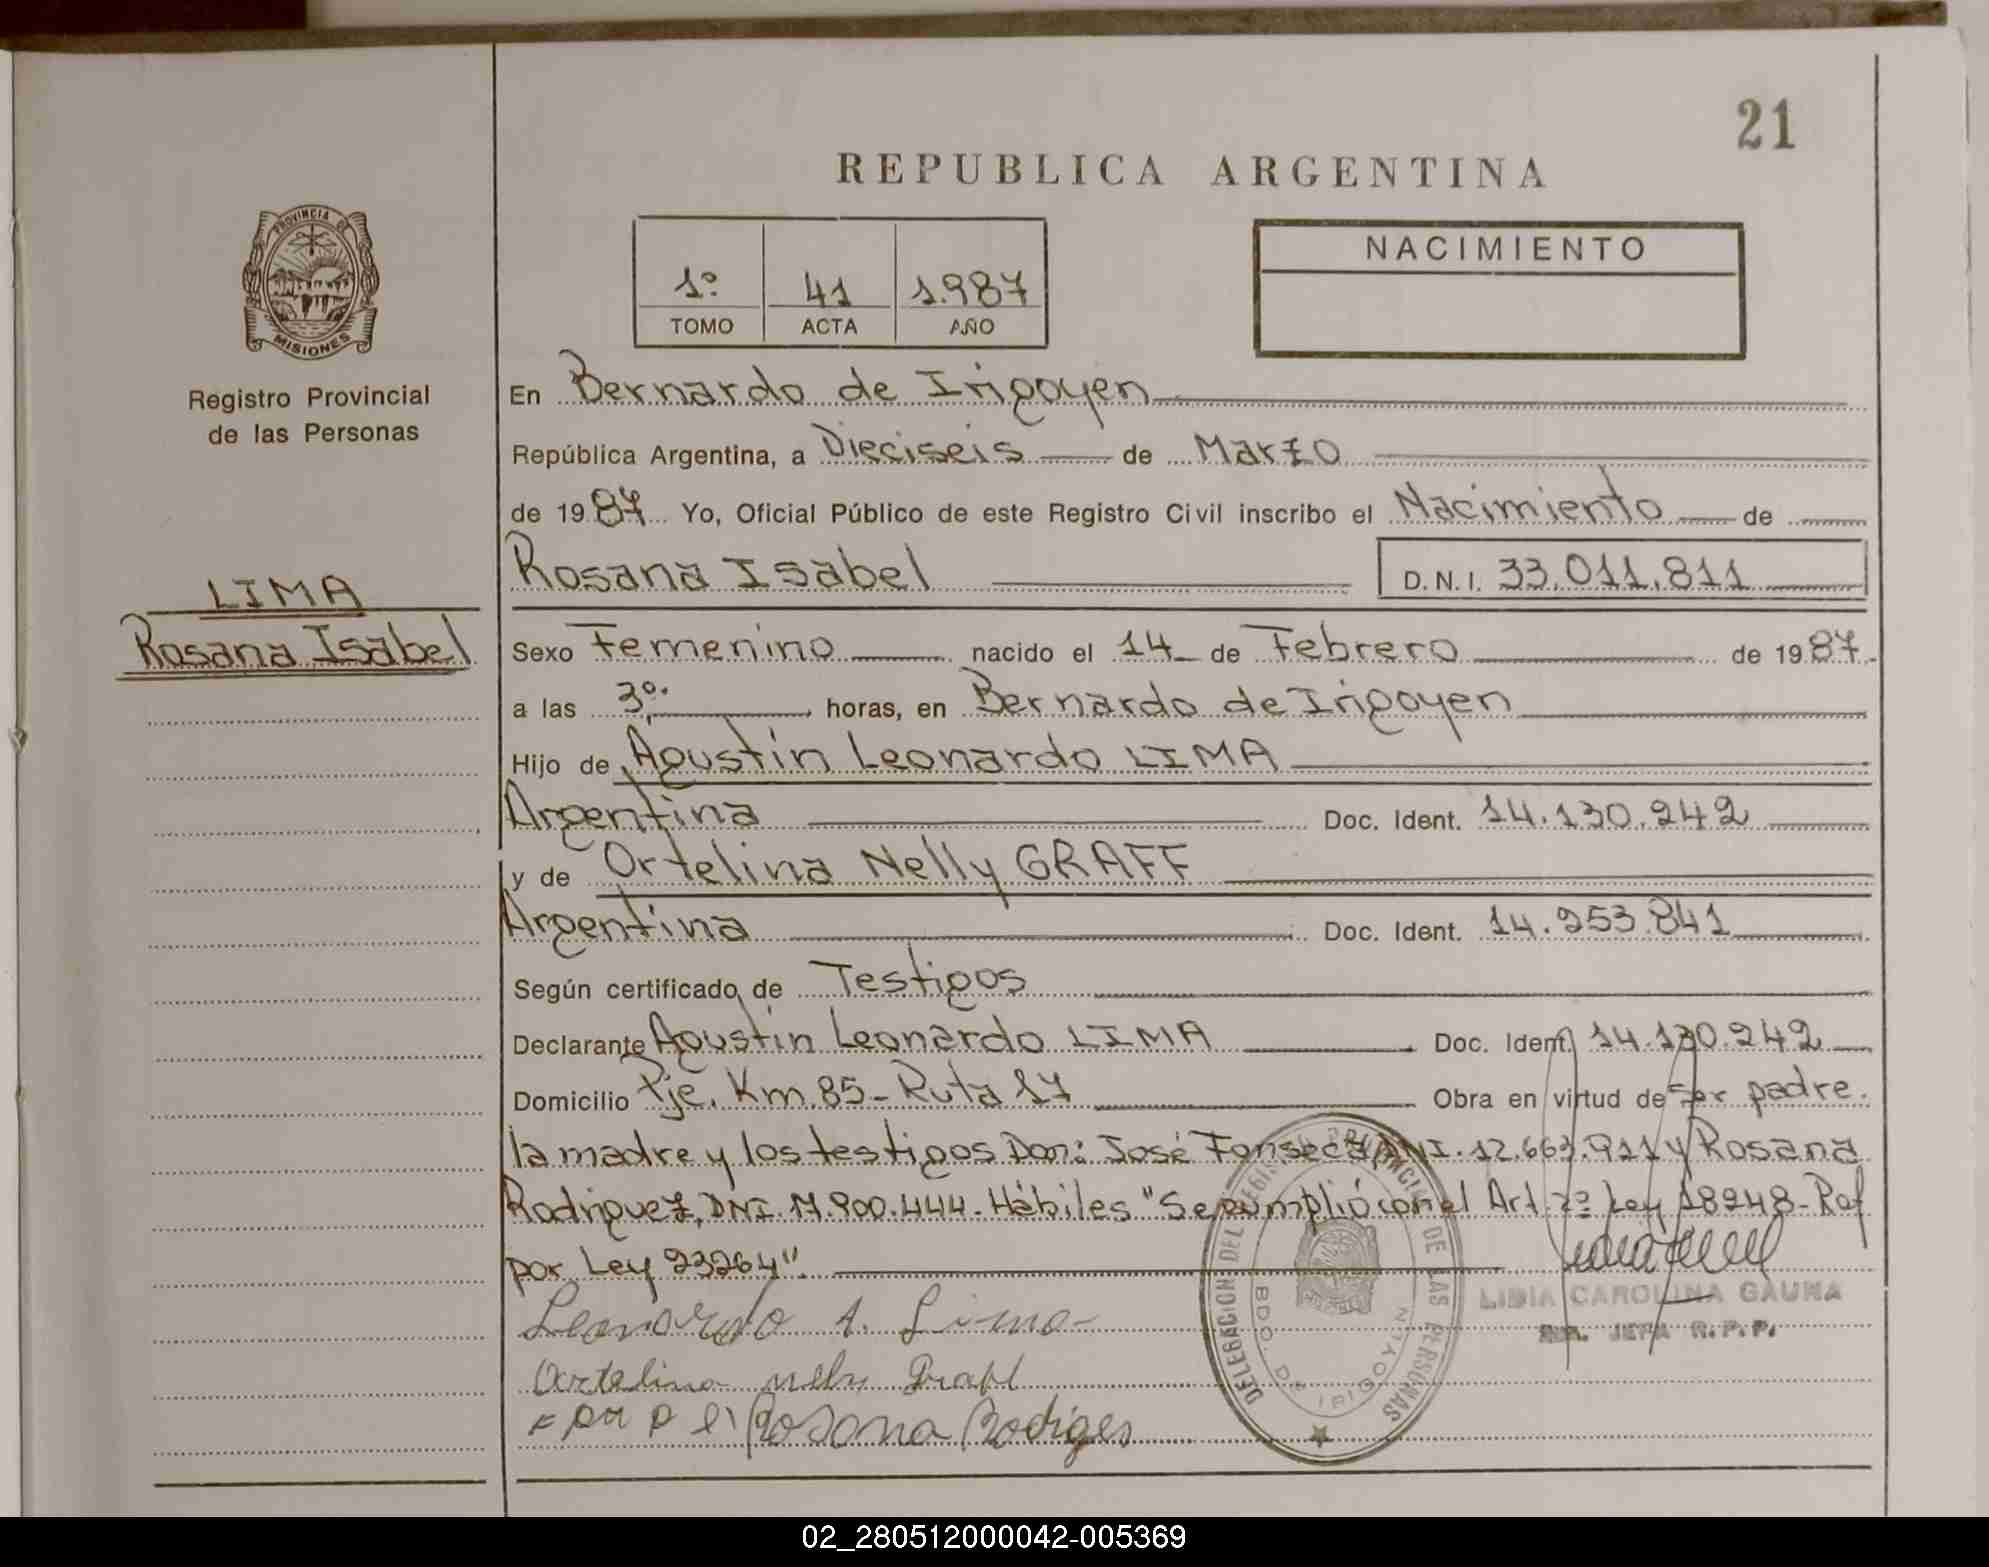 21
REPUBLICA ARGENTINA
PROVINCIA DE
MISIONES
Registro Provincial
de las Personas
LIMA
Rosana Isabel
1º 41 1.987
TOMO ACTA AÑO
NACIMIENTO
En Bernardo de Irigoyen
República Argentina, a Dieciseis de Marzo
de 1987 Yo, Oficial Público de este Registro Civil inscribo el Nacimiento de
Rosana Isabel D.N.I. 33.011.811
Sexo Femenino nacido el 14 de Febrero de 1987
a las 3º. horas, en Bernardo de Irigoyen
Hijo de Agustin Leonardo LIMA
Argentina Doc. Ident. 14.130.242
y de Ortelina Nelly GRAFF
Argentina Doc. Ident. 14.253.841
Según certificado de Testigos
Declarante Agustin Leonardo LIMA Doc. Ident. 14.130.242
Domicilio Pje. Km.85-Ruta 17 Obra en virtud de Ser padre.
la madre y los testigos Don: José Fonseca DNI. 12.663.911 y Rosana
Rodriguez, DNI. 17.900.444. Hábiles "Se cumplió con el Art 2º Ley 18248-Ref
por Ley 23264"
Leonardo A. Lima
Ortelina nely Graff
Rosana Rodiges
DELEGACION DEL REGISTRO PROVINCIAL DE LAS PERSONAS
BDO. DE IRIGOYEN
LIDIA CAROLINA GAUNA
JEFA R.P.P.
02_280512000042-005369